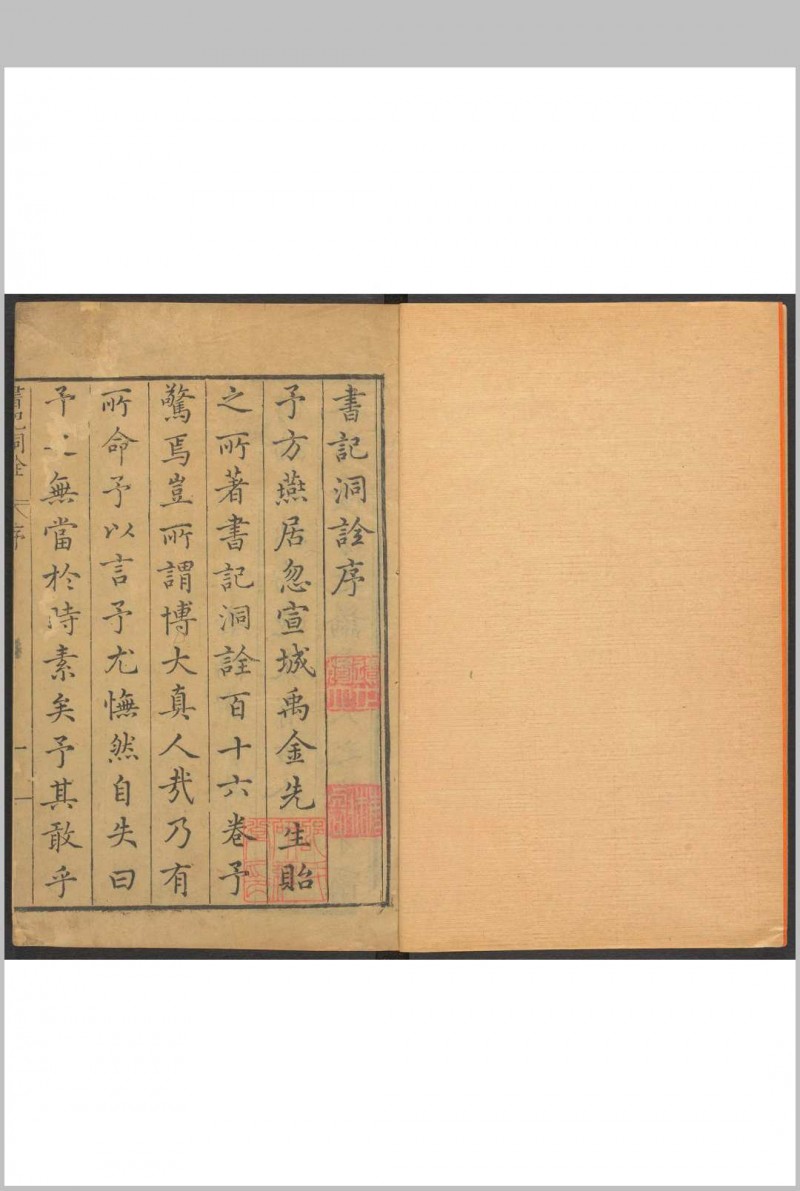 書記洞詮序
予方燕居忽宣城禹金先生貽
之所著書記洞詮百十六卷予
驚焉豈所謂博大真人㢤乃有
所命予以言予尤憮然自失曰
予　無當於時素矣予其敢乎
書記洞詮　序　一